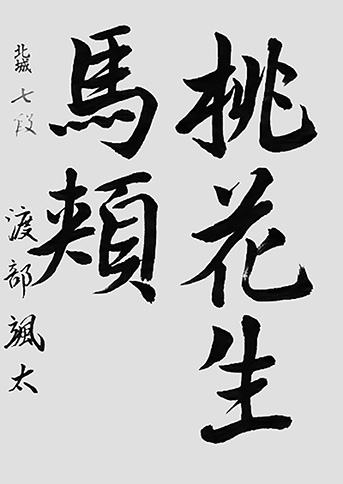 桃花生
馬頰
北城 七段 渡部颯太